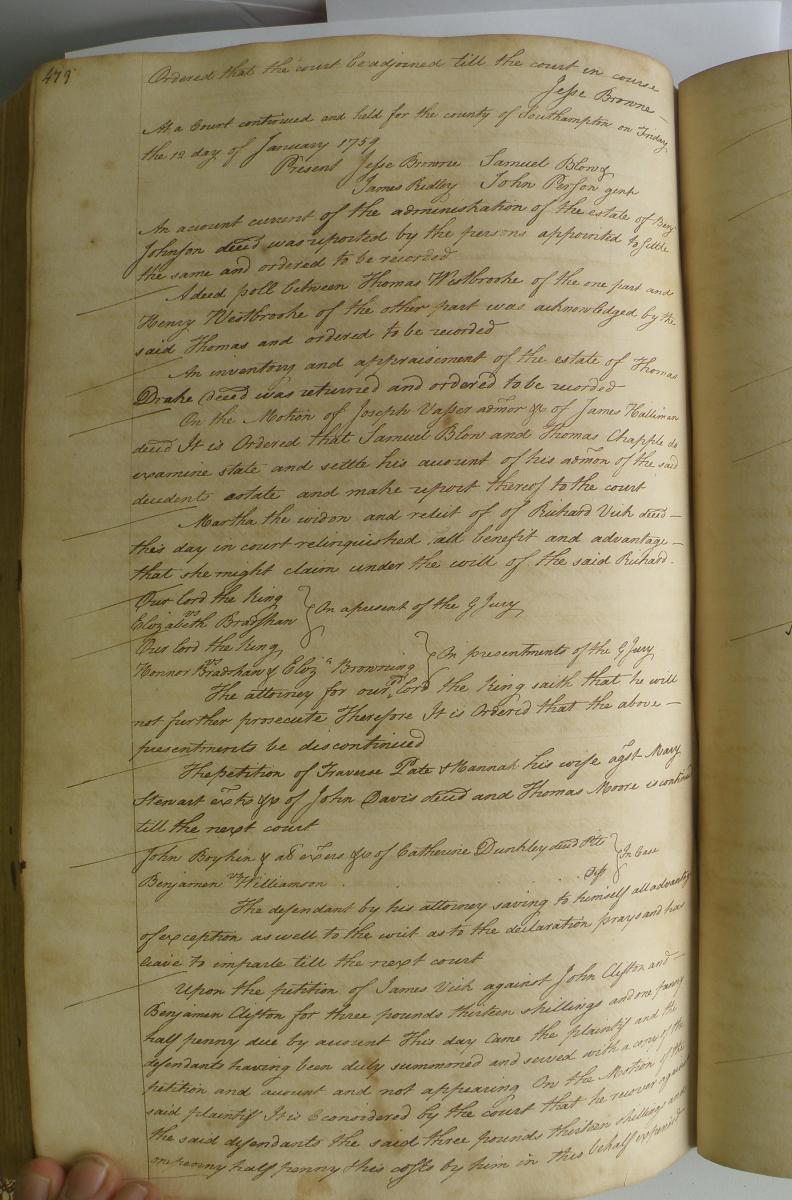 479
Ordered that the court be adjoined till the court in course
Jesse Browne
At a Court continued and held for the county of Southampton on Friday
the 12 day of January 1759
Present Jesse Browne Samuel Blow &
James Ridley John Person gent
An account current of the administration of the estate of Benj
Johnson decd was reported by the persons appointed to settle
the same and ordered to be recorded
A deed poll between Thomas Westbrooke of the one part and
Henry Westbrooke of the other part was acknowledged by the
said Thomas and ordered to be recorded
An inventory and appraisement of the estate of Thomas
Drake decd was returned and ordered to be recorded
On the Motion of Joseph Vasser admor &c of James Halliman
decd It is Ordered that Samuel Blow and Thomas Chapple do
examine state and settle his account of his admon of the said
decedents estate and make report thereof to the court
Martha the widow and relict of of Richard Vick decd
this day in court relinquished all benefit and advantage
that she might claim under the will of the said Richard
Our lord the King
vs
Elizabeth Bradshaw
On a present of the G Jury
Our lord the King
vs
Honnor Bradshaw & Eliza Browning
On presentments of the G Jury
The attorney for our lord the King saith that he will
not further prosecute Therefore It is Ordered that the above
presentments be discontinued
The petition of Traverse Pate & Hannah his wife agst Mary
Stewart extx &c of John Davis decd and Thomas Moore is continued
till the next court
John Boykin & al exers &c of Catherine Dunkley decd Plts
vs
In Case
Benjamen Williamson
The defendant by his attorney saving to himself all advantages
of exception as well to the writ as to the declaration prays and has
leave to imparle till the next court
Upon the petition of James Vick against John Clifton and
Benjamen Clifton for three pounds thirteen shillings and one penny
half penny due by account This day came the plaintif and the
defendants having been duly summoned and served with a copy of the
petition and account and not appearing On the Motion of the
said plaintif It is considered by the court that he recover against
the said defendants the said three pounds thirteen shillings and
one penny half penny & his costs by him in this behalf expended